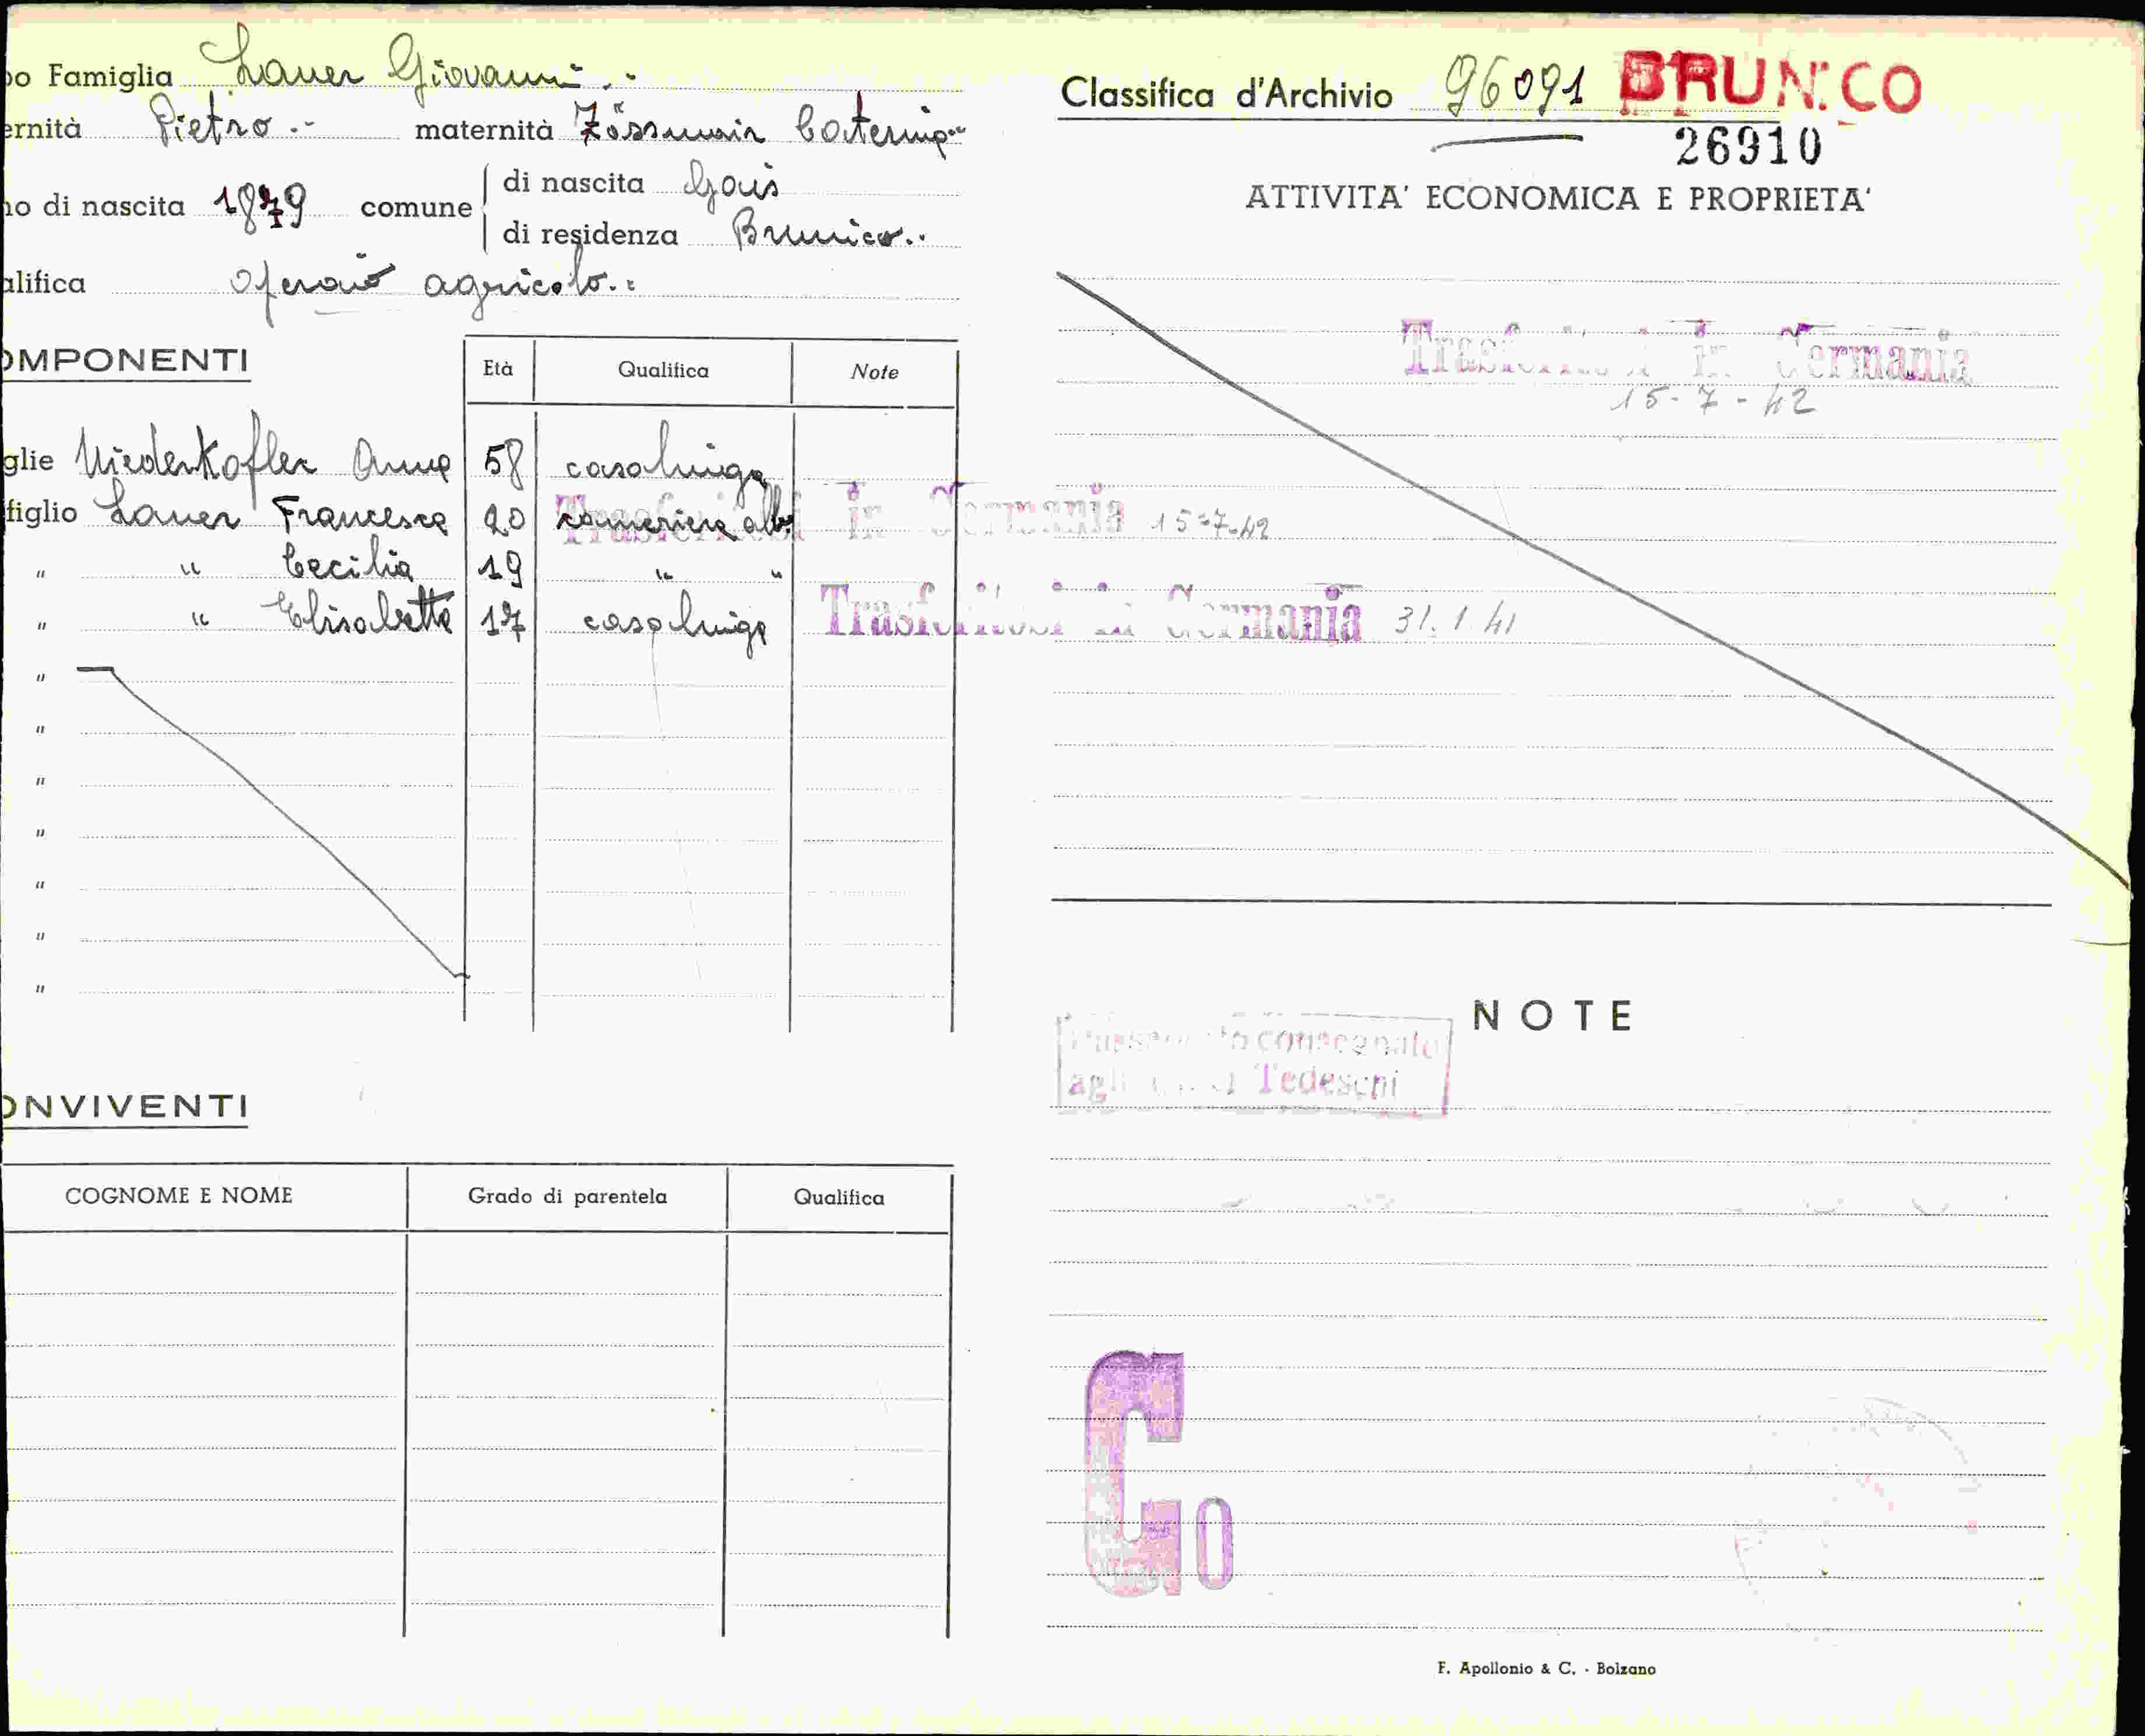 po Famiglia Lauer Giovanni.-
ernità Pietro.- maternità Zössmair Caterina
no di nascita 1879 comune di nascita Gais
di residenza Brunico..
alifica operaio agricolo.:
OMPONENTI
Età Qualifica Note
glie Niederkofler Anna 58 casalinga
figlio Lauer Francesca 20 cameriera alb.
Trasferitosi in Germania 15-7-42
" " Cecilia 19 " "
" " Elisabetta 17 casalinga
Trasferitosi in Germania 31.1.41
"
"
"
"
"
"
"
ONVIVENTI
COGNOME E NOME Grado di parentela Qualifica
Classifica d'Archivio 96091 BRUNICO
26910
ATTIVITA' ECONOMICA E PROPRIETA'
Trasferitosi in Germania
15-7-42
NOTE
consegnato
agli Tedeschi
Go
F. Apollonio & C. - Bolzano